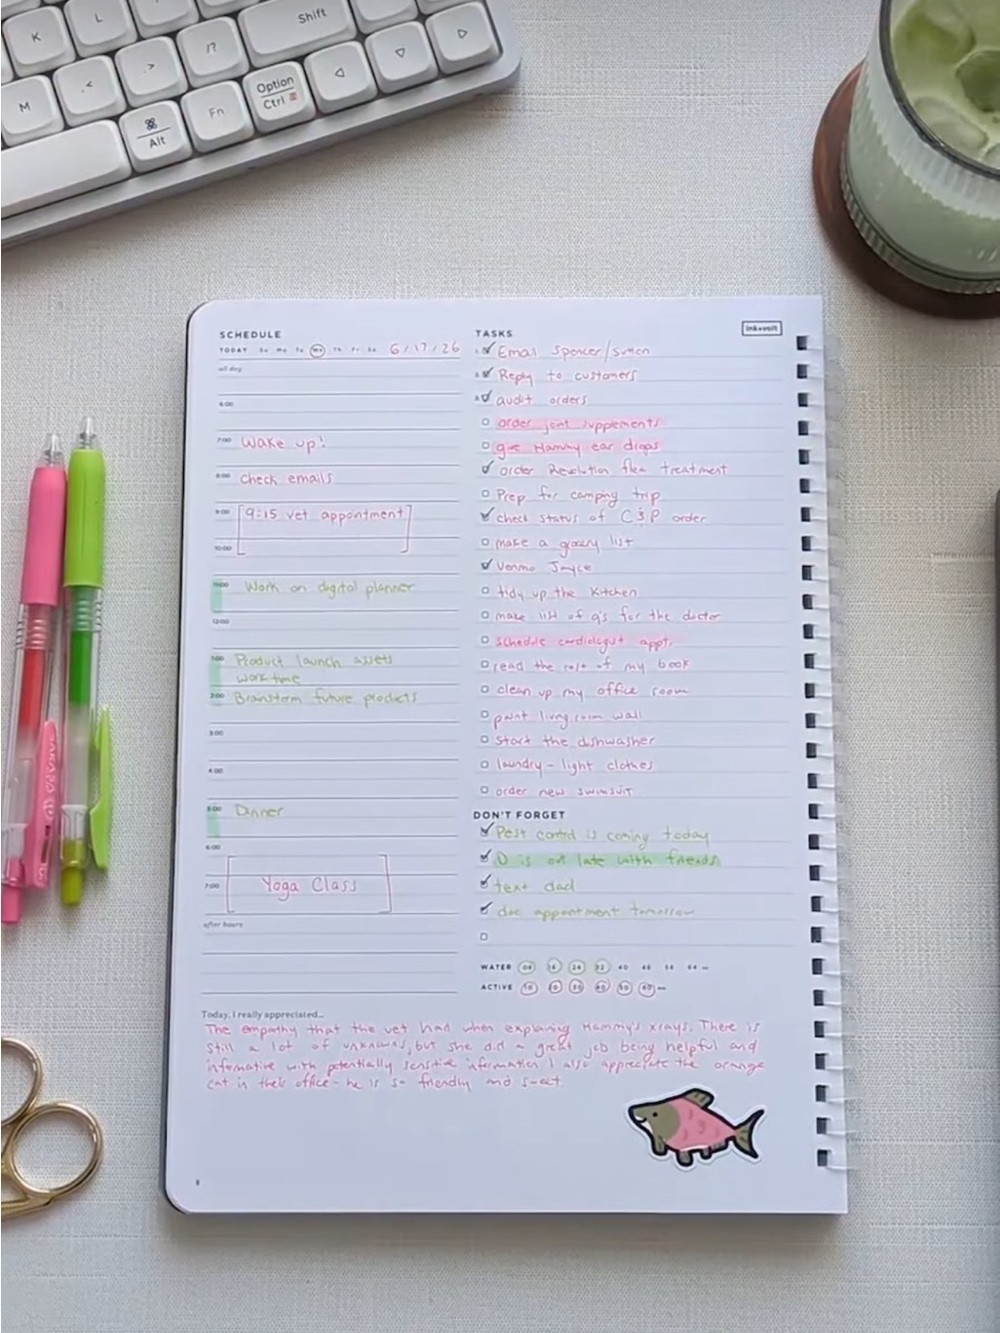 K
L
Shift
M
<
>
!?
⌘
Alt
Fn
Option
Ctrl
SCHEDULE
TODAY Su Mo Tu We Th Fr Sa 6/17/26
all day
6:00
7:00 Wake up!
8:00 Check emails
9:00 9:15 vet appointment
10:00
11:00 Work on digital planner
12:00
1:00 Product launch assets
work time
2:00 Brainstorm future products
3:00
4:00
5:00 Dinner
6:00
7:00 Yoga Class
after hours
TASKS
ink+volt
1 Email Spencer/Sutton
2 Reply to customers
3 audit orders
order joint supplements
give Hammy ear drops
order Revolution flea treatment
Prep for camping trip
check status of C&P order
make a grocery list
Venmo Joyce
tidy up the kitchen
make list of q's for the doctor
schedule cardiologist appt.
read the rest of my book
clean up my office room
paint living room wall
start the dishwasher
laundry - light clothes
order new swimsuit
DON'T FORGET
Pest control is coming today
D is out late with friends
text dad
doc appointment tomorrow
WATER 08 16 24 32 40 48 56 64 oz
ACTIVE 10 20 30 40 50 60
Today, I really appreciated...
The empathy that the vet had when explaining Hammy's xrays. There is
still a lot of unknowns, but she did a great job being helpful and
informative with potentially sensitive information. I also appreciate the orange
cat in their office - he is so friendly and sweet.